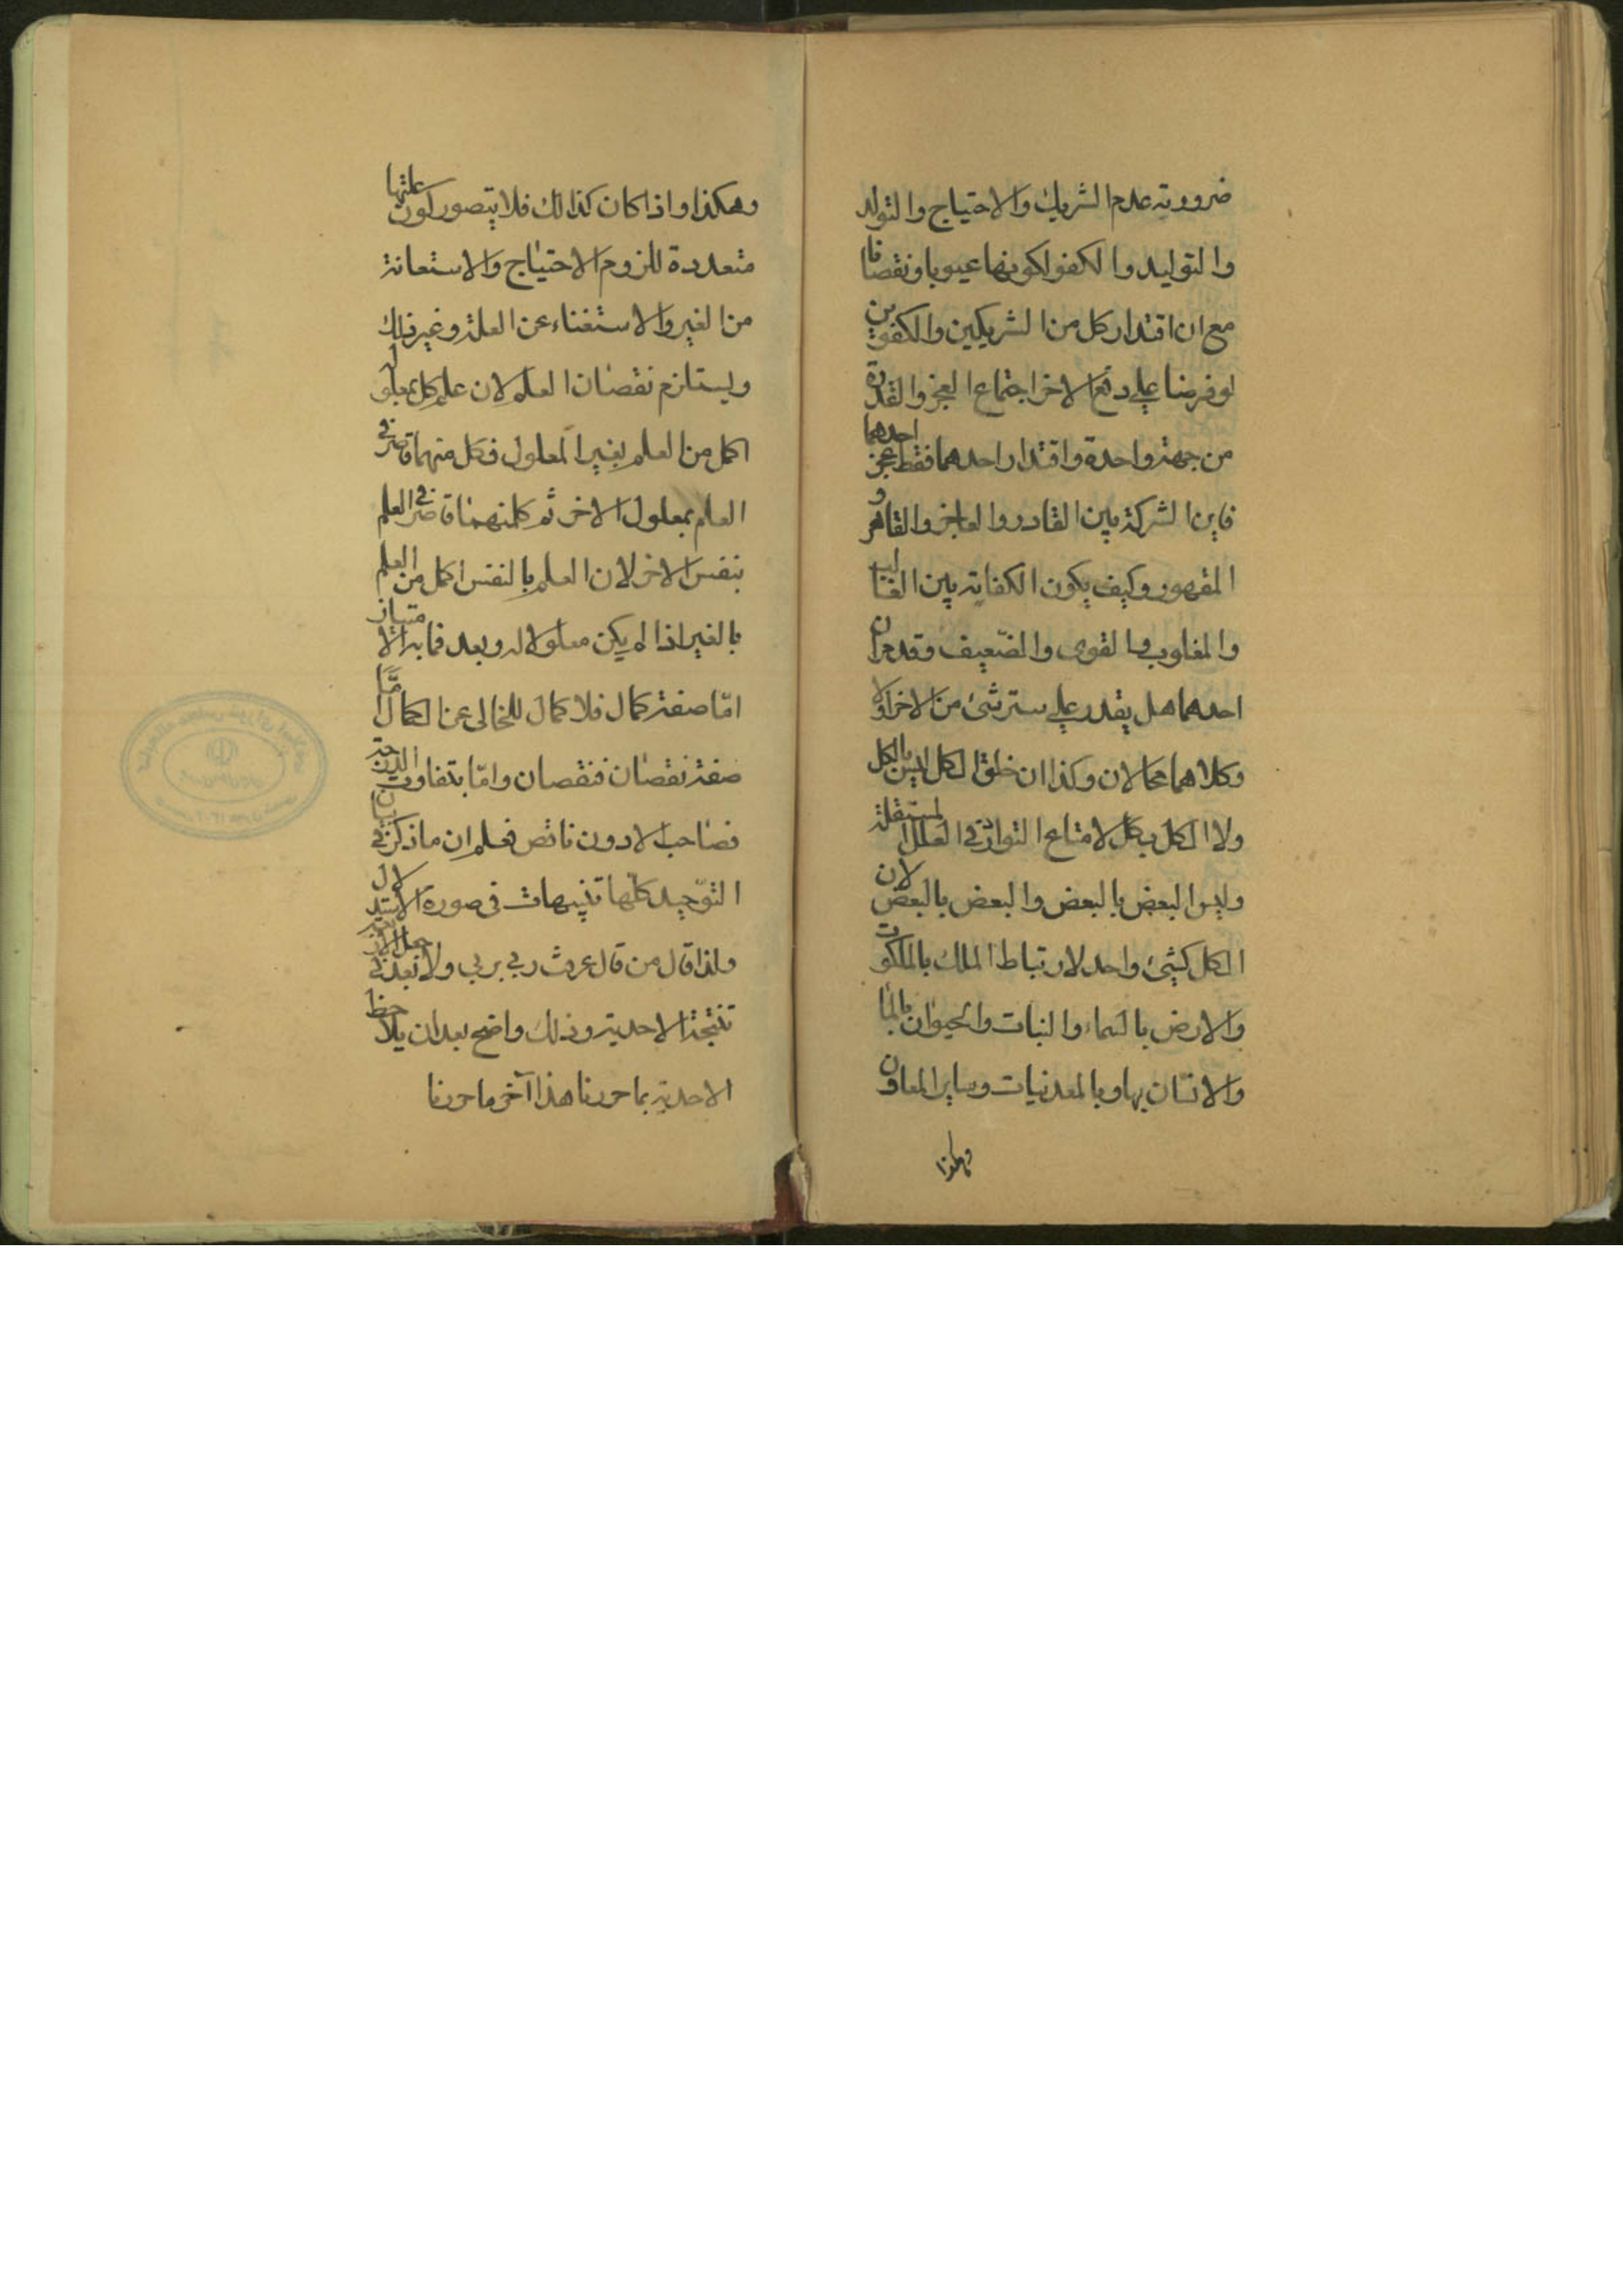 ضرورته عدم الشريك والاحتياج والتولد
والتوليد والكفو لكونها عيوبا ونقصانا
مع ان اقتدار كل من الشريكين والكفوين
لو فرضنا على دفع الاخر اجتماع العجز والقدرة
من جهة واحدة واقتدار احدهما فقط عجز احدهما
فاين الشركة بين القادر والعاجز والقاهر و
المقهور وكيف يكون الكفاته بين الغالب
والمغلوب والقوى والضعيف وقدم ان
احدهما هل يقدر على ستر شئ من الاخر اولا
وكلاهما محالان وكذا ان خلق الكل ليس بالكل
ولا الكل بكل لامتناع التوارد فى العلل المستقلة
وليس البعض بالبعض والبعض بالبعض لان
الكل كشئ واحد لارتباط الملك بالملكوت
والارض بالسماء والنبات والحيوان بالماء
والانسان بها وبالمعدنيات وساير المعاون
وهكذا
وهكذا واذا كان كذالك فلا يتصور كون علتها
متعددة للزوم الاحتياج والاستعانة
من الغير والاستغناء عن العلة وغير ذلك
ويستلزم نقصان العلم لان علم كل بمعلول
اكمل من العلم بغير المعلول فكل منهما قاصر فى
العلم بمعلول الاخر ثم كل منهما قاصر فى العلم
بنفس الاخر لان العلم بالنفس اكمل من العلم
بالغير اذا لم يكن معلولا له وبعد فما به الامتياز
امّا صفة كمال فلا كمال للخالى عن الكمال امّا
صفة نقصان فنقصان وامّا بتفاوت الدرجة
فصاحب الادون ناقص فعلم ان ما ذكر فى بيان
التوّحيد كلّها تنبيهات فى صورة الاستدلال
ولذا قال من قال عرفت ربى بربى ولا نعبد فى
تنتجة الاحدية وذلك واضح بعد ان يلاحظ
الاحدية بما حررنا هذا آخر ما حررنا